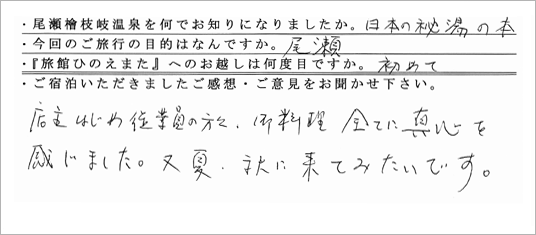 ・尾瀬檜枝岐温泉を何でお知りになりましたか。日本の秘湯の本
・今回のご旅行の目的はなんですか。尾瀬
・『旅館ひのえまた』へのお越しは何度目ですか。初めて
・ご宿泊いただきましたご感想・ご意見をお聞かせ下さい。
店主はじめ従業員の方々、御料理 全てに真心を
感じました。又夏、秋に来てみたいです。